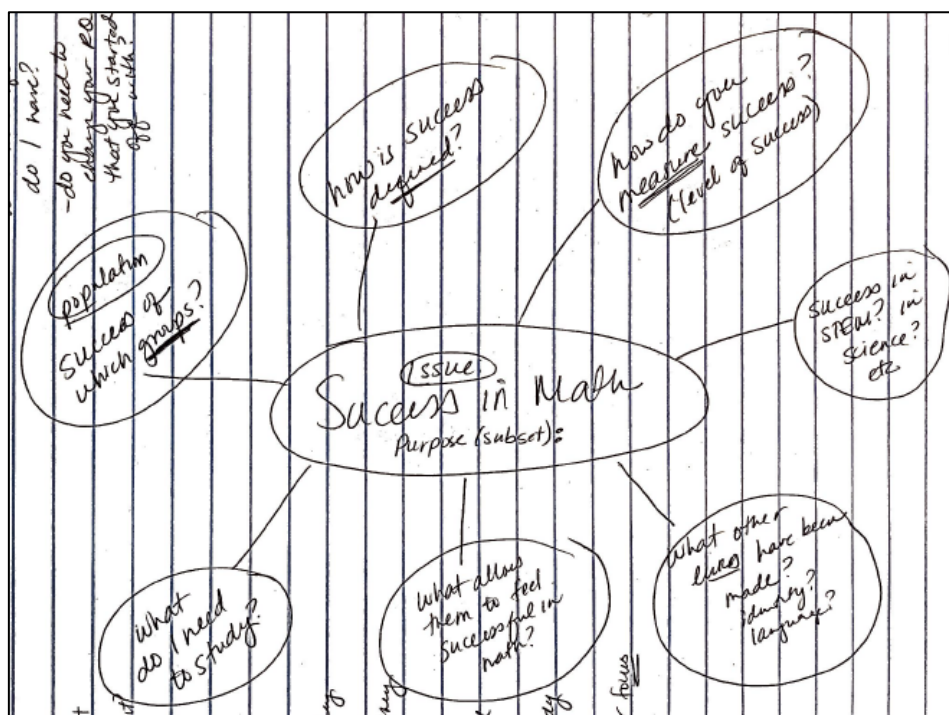 do I have?
-do you need to
change your RQ
that you started
off with?
how is success
defined?
how do you
measure success?
(level of success)
population
success of
which groups?
success in
STEM? in
science?
etc
issue:
Success in Math
Purpose (subset):
what
do I need
to study?
What allows
them to feel
successful in
math?
what other
links have been
made?
identity?
language?
focus